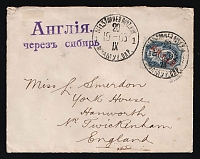 Англія.
черезъ сибирь
Miss L. Smerdon
York House,
Hanworth
Nr Twickenham
England